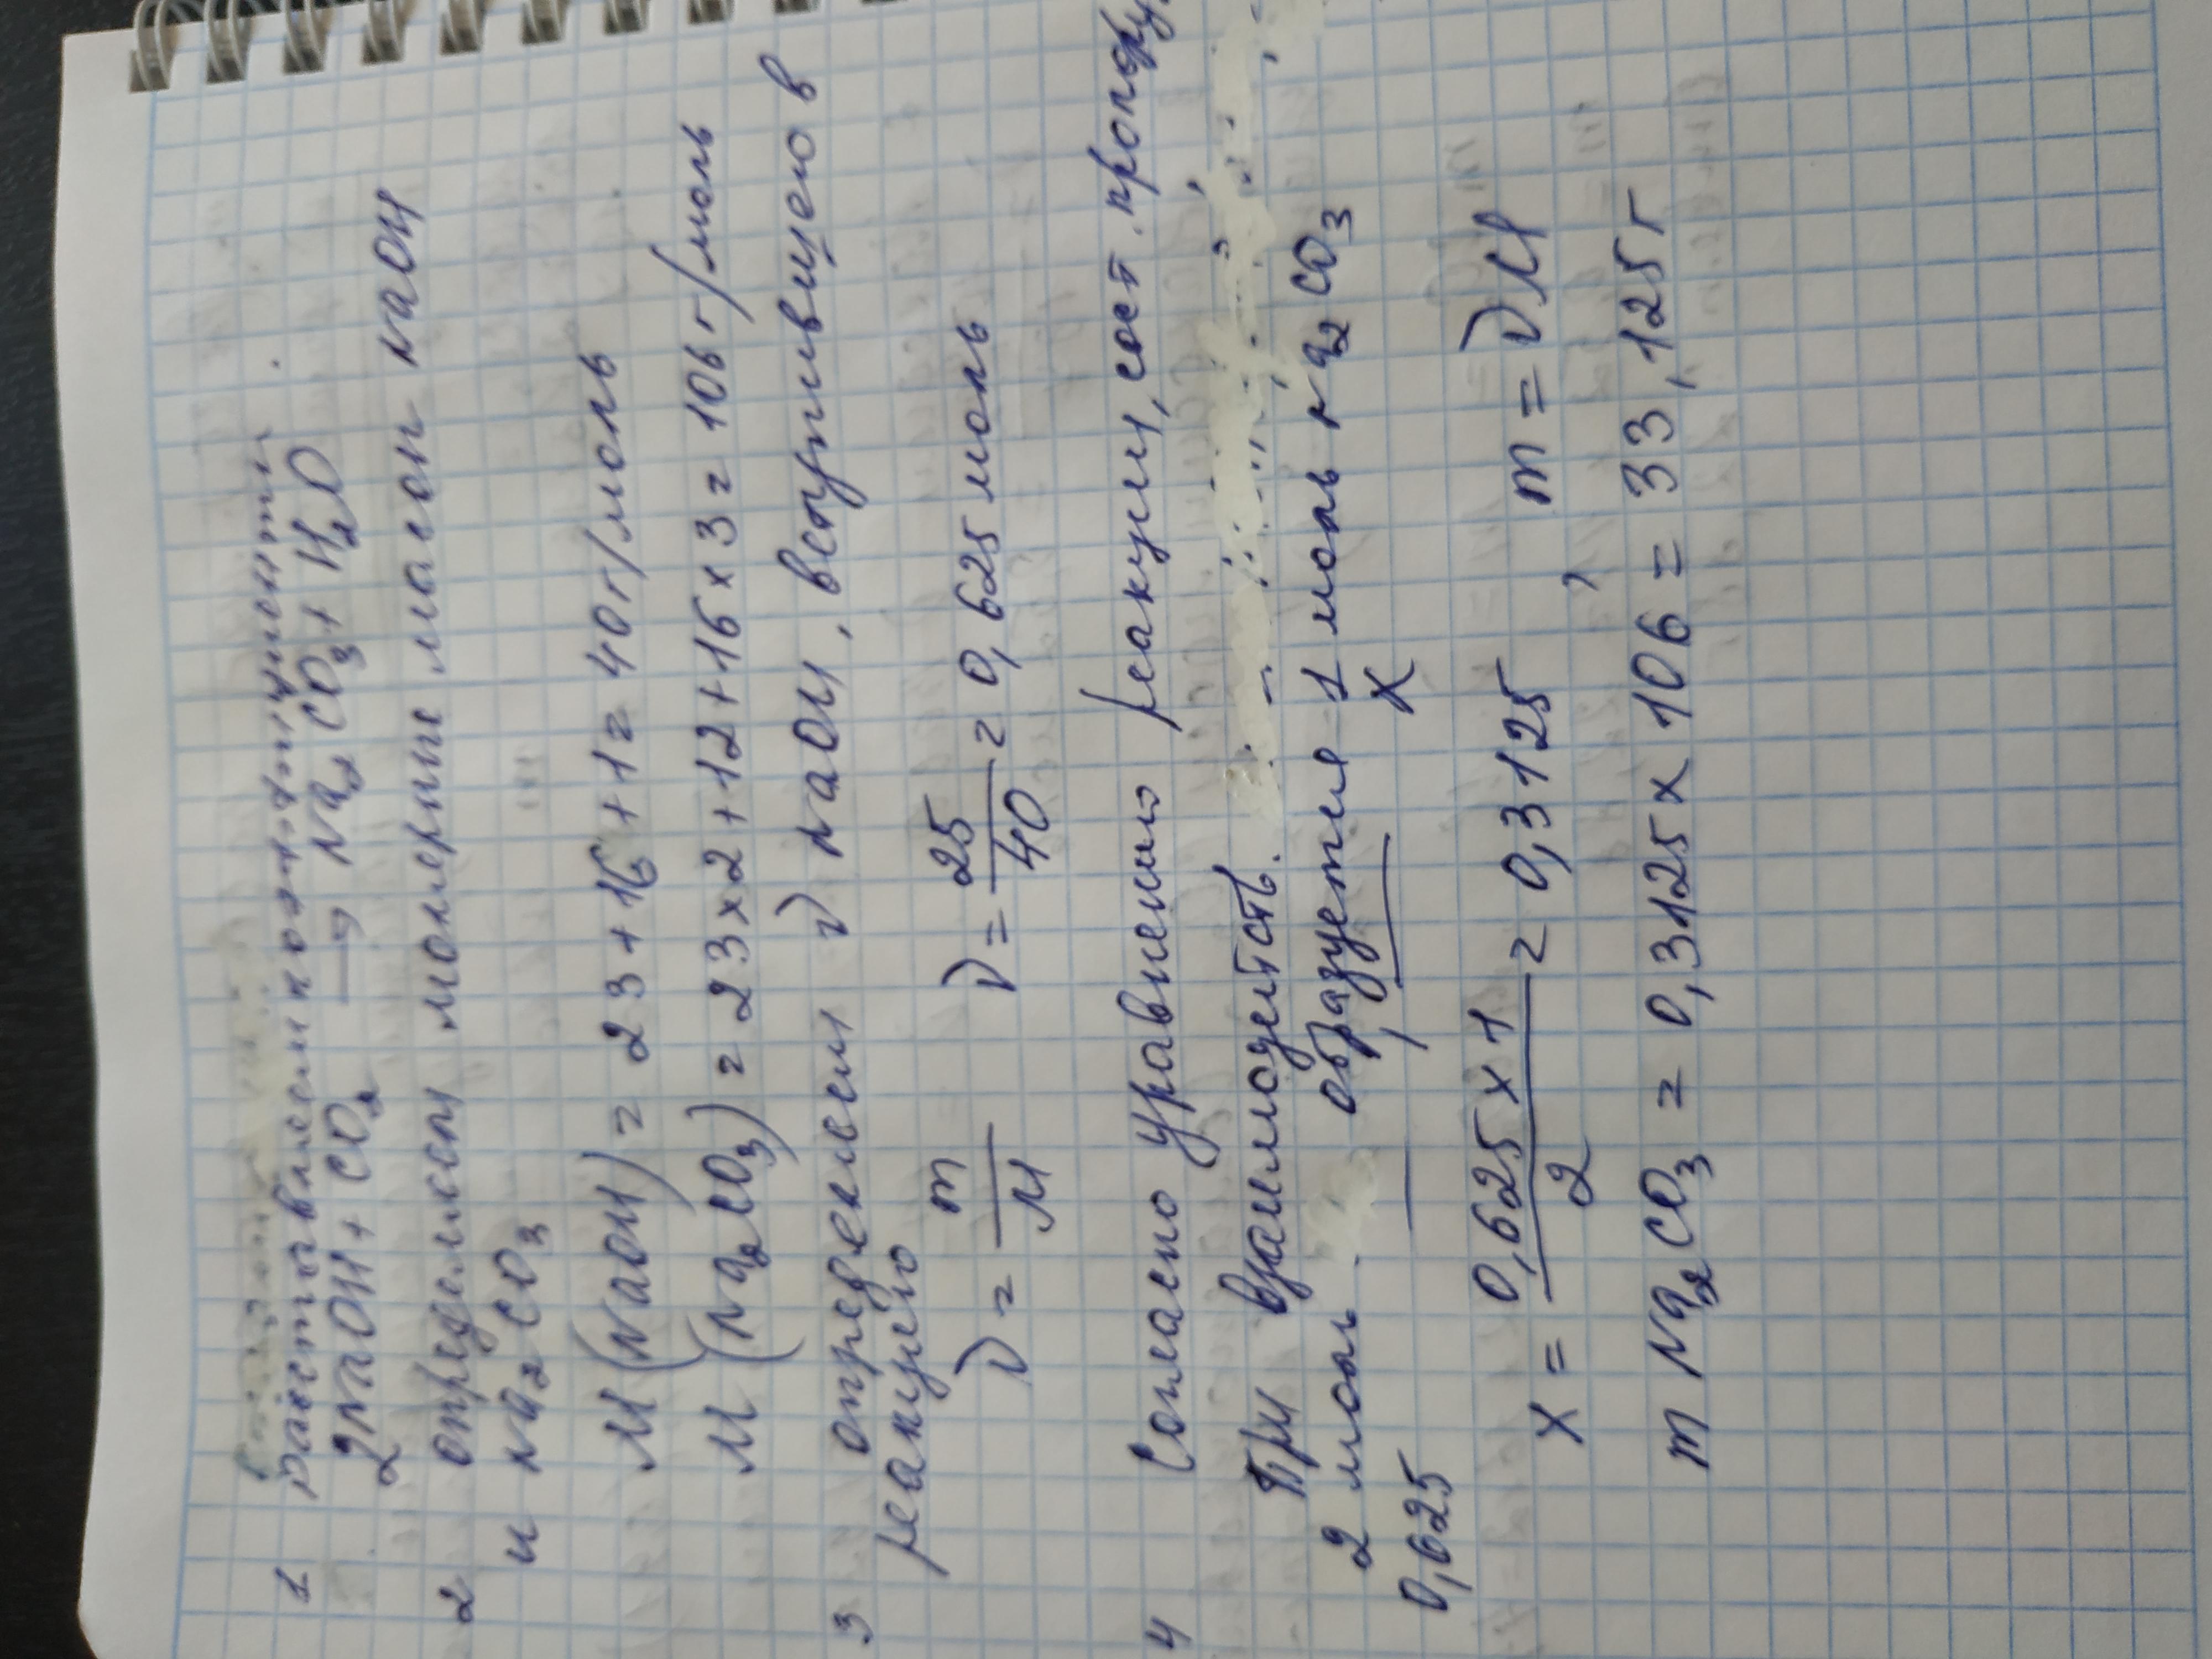 1 расставляем коэффициенты
2NaOH + CO2 → Na2CO3 + H2O
2 определяем молярные массы NaOH
и Na2CO3
M(NaOH) = 23+16+1= 40 г/моль
M(Na2CO3) = 23x2+12+16x3= 106 г/моль
3 определяем ν NaOH, вступившего в
реакцию
ν = m/M ν = 25/40 = 0,625 моль
4 Согласно уравнению реакции, сост.
При взаимодейств.
2 моль образуется 1 моль Na2CO3
0,625 x
x = 0,625 x 1 / 2 = 0,3125, m = νM
m Na2CO3 = 0,3125 x 106 = 33,125 г